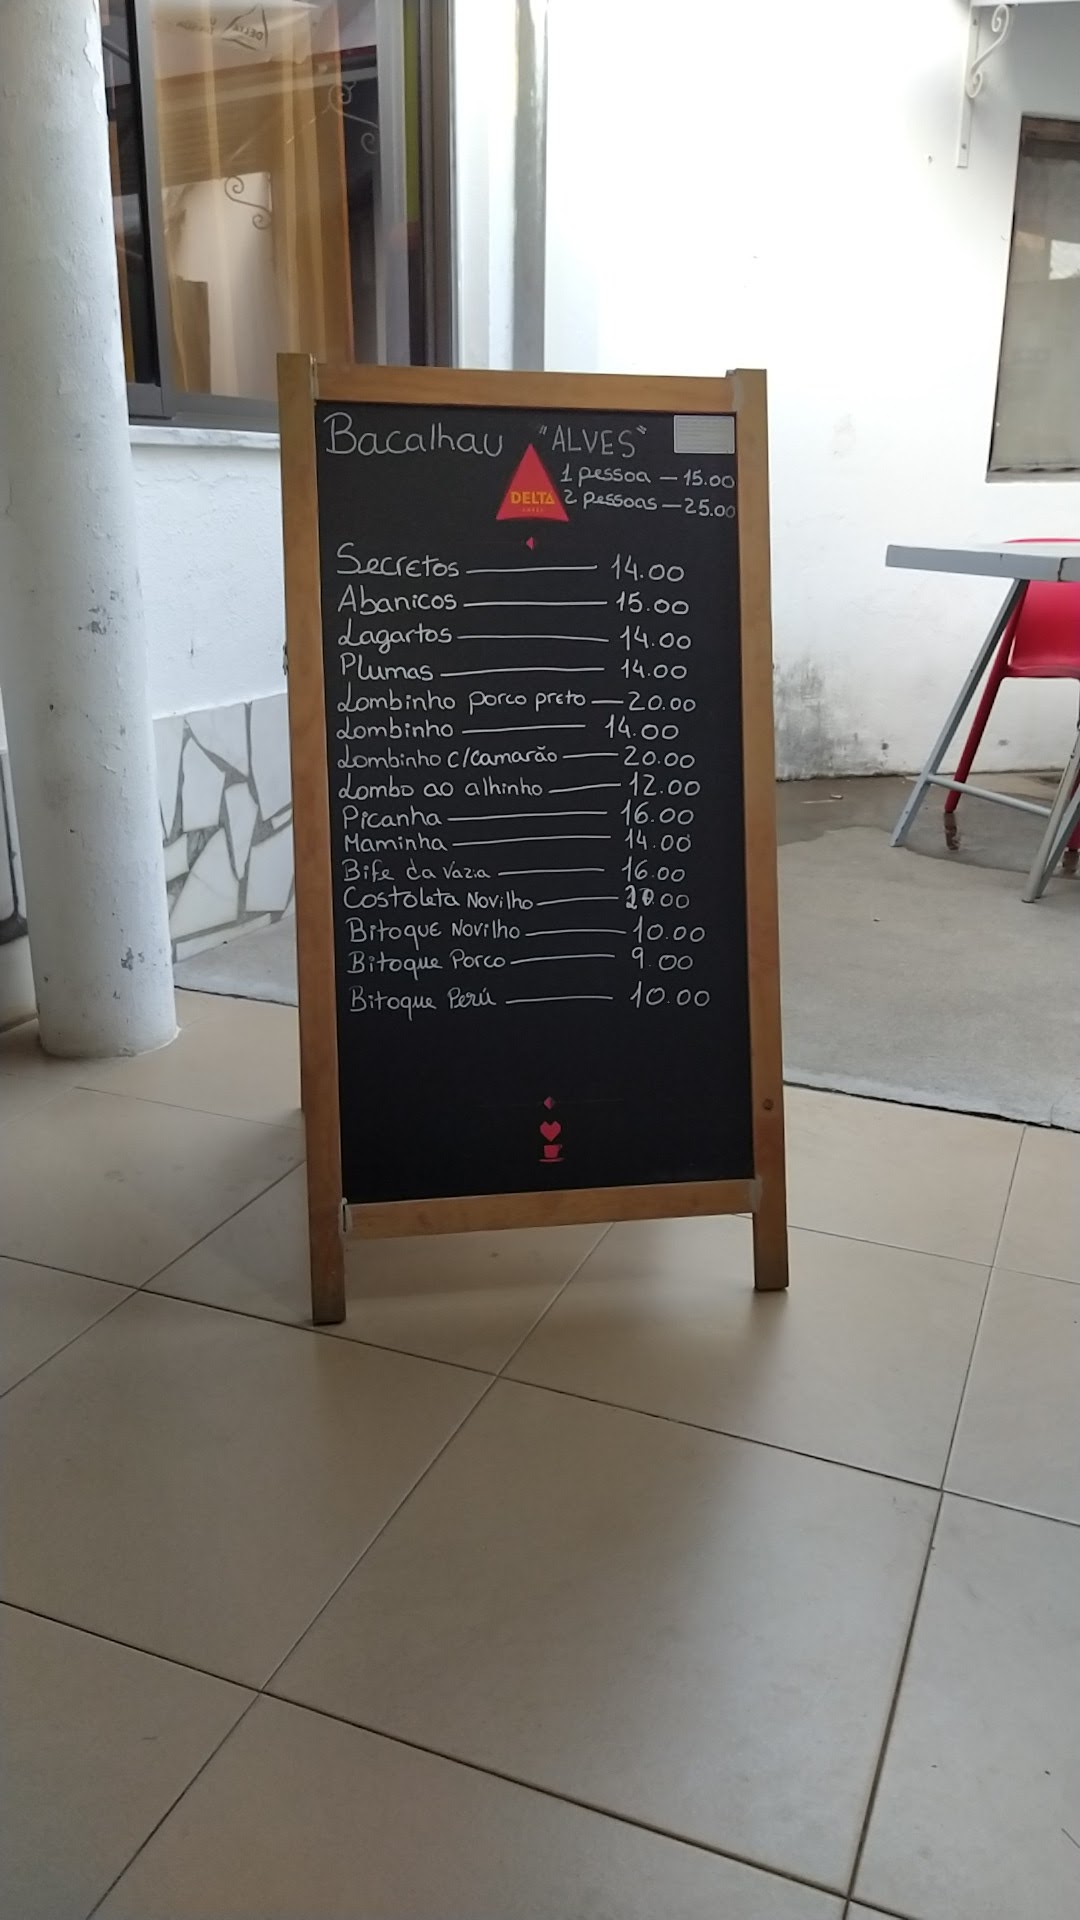 Bacalhau "ALVES"
1 pessoa — 15.00
DELTA
2 pessoas — 25.00
Secretos — 14.00
Abanicos — 15.00
Lagartos — 14.00
Plumas — 14.00
Lombinho porco preto — 20.00
Lombinho — 14.00
Lombinho c/camarão — 20.00
Lombo ao alhinho — 12.00
Picanha — 16.00
Maminha — 14.00
Bife da Vazia — 16.00
Costoleta Novilho —
Bitoque Novilho — 10.00
Bitoque Porco — 9.00
Bitoque Perú — 10.00